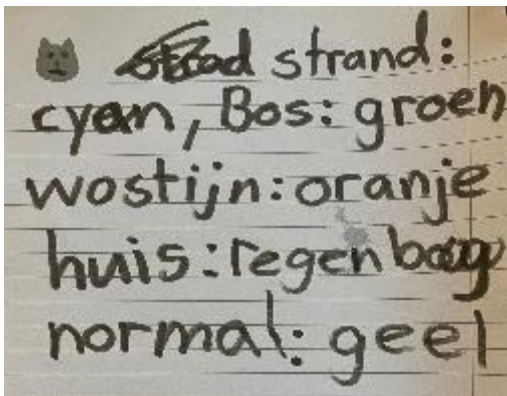 strand:
cyan, Bos: groen
wostijn: oranje
huis: regenboog
normal: geel